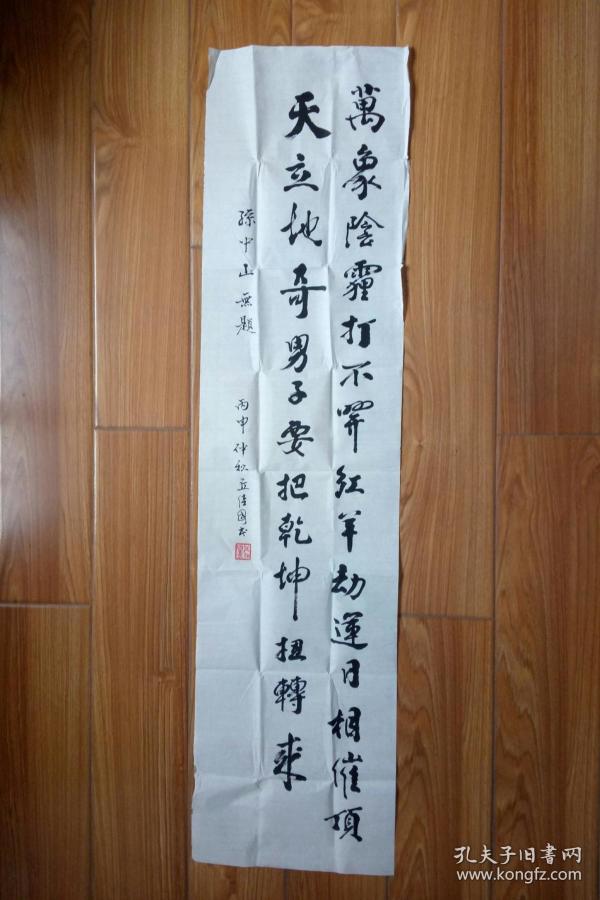 萬象陰霾打不開紅羊劫運日相催頂
天立地奇男子要把乾坤扭轉來
孫中山 無題
丙申仲秋
孔夫子旧書网
www.kongfz.com